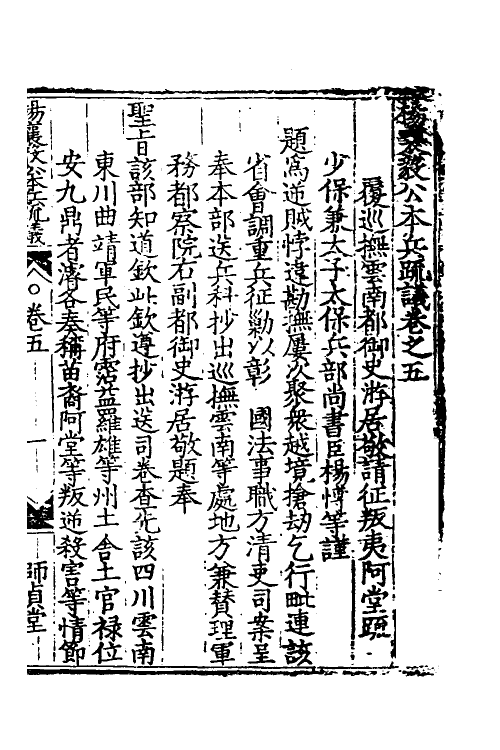 楊襄毅公本兵疏議卷之五
覆巡撫雲南都御史游居敬請征叛夷阿堂疏
少保兼太子太保兵部尚書臣楊博等謹
題為逆賊悖違勘撫屢次聚衆越境搶劫乞行毗連該
省會調重兵征勦以彰　國法事職方清吏司案呈
奉本部送兵科抄出巡撫雲南等處地方兼贊理軍
務都察院右副都御史游居敬題奉
聖旨該部知道欽此欽遵抄出送司卷查先該四川雲南
東川曲靖軍民等府霑益羅雄等州土舍土官祿位
安九鼎者濬各奏稱苗裔阿堂等叛逆殺害等情節
楊襄毅公本兵疏議　卷五　一　師貞堂